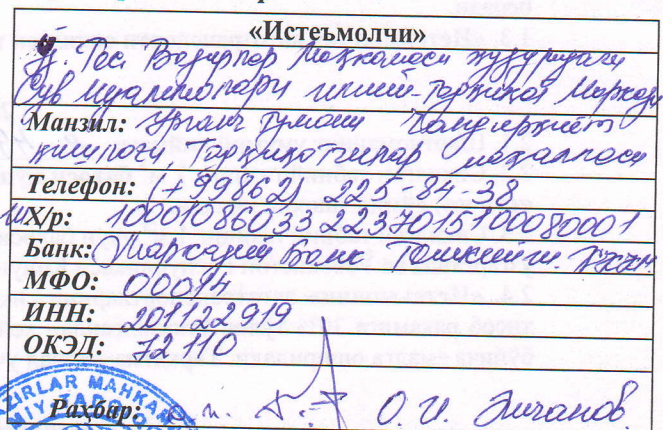 «Истеъмолчи»
Ўз. Рес. Вазирлар Маҳкамаси ҳузуридаги
Сув муаммолари илмий-тадқиқот Маркази
Манзил: Урганч тумани Чандирқиёт
қишлоғи Тадқиқотчилар маҳалласи
Телефон: (+99862) 225-84-38
Ш Х/р: 100010860332237015100080001
Банк: Марказий Банк Тошкент ш. ҲККМ.
МФО: 00014
ИНН: 201122919
ОКЭД: 72110
AZIRLAR MAHKAM
MIY-TADQIQO
Раҳбар: О. И. Эшчанов